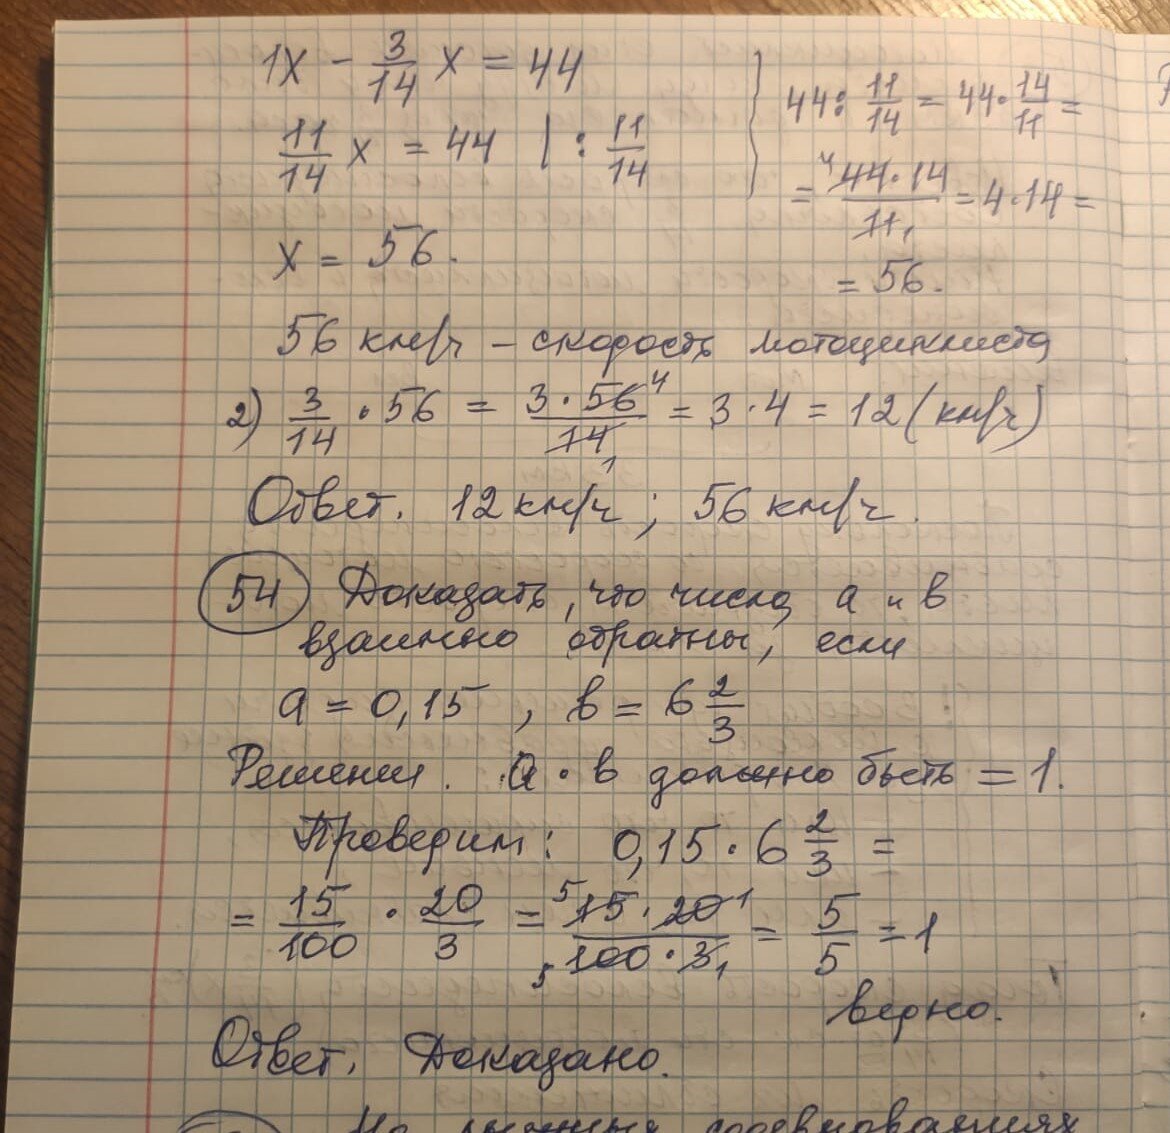 1x - 3/14 x = 44
11/14 x = 44 | : 11/14
x = 56.
44 : 11/14 = 44 · 14/11 =
= 44·14/11 = 4·14 =
= 56.
56 км/ч – скорость мотоциклиста
2) 3/14 · 56 = 3·56/14 = 3·4 = 12 (км/ч)
Ответ. 12 км/ч ; 56 км/ч.
54 Доказать, что числа a и b
взаимно обратны, если
a = 0,15 , b = 6 2/3
Решение. a · b должно быть = 1.
Проверим: 0,15 · 6 2/3 =
= 15/100 · 20/3 = 15·20/100·3 = 5/5 = 1
верно.
Ответ. Доказано.
На лыжных соревнованиях